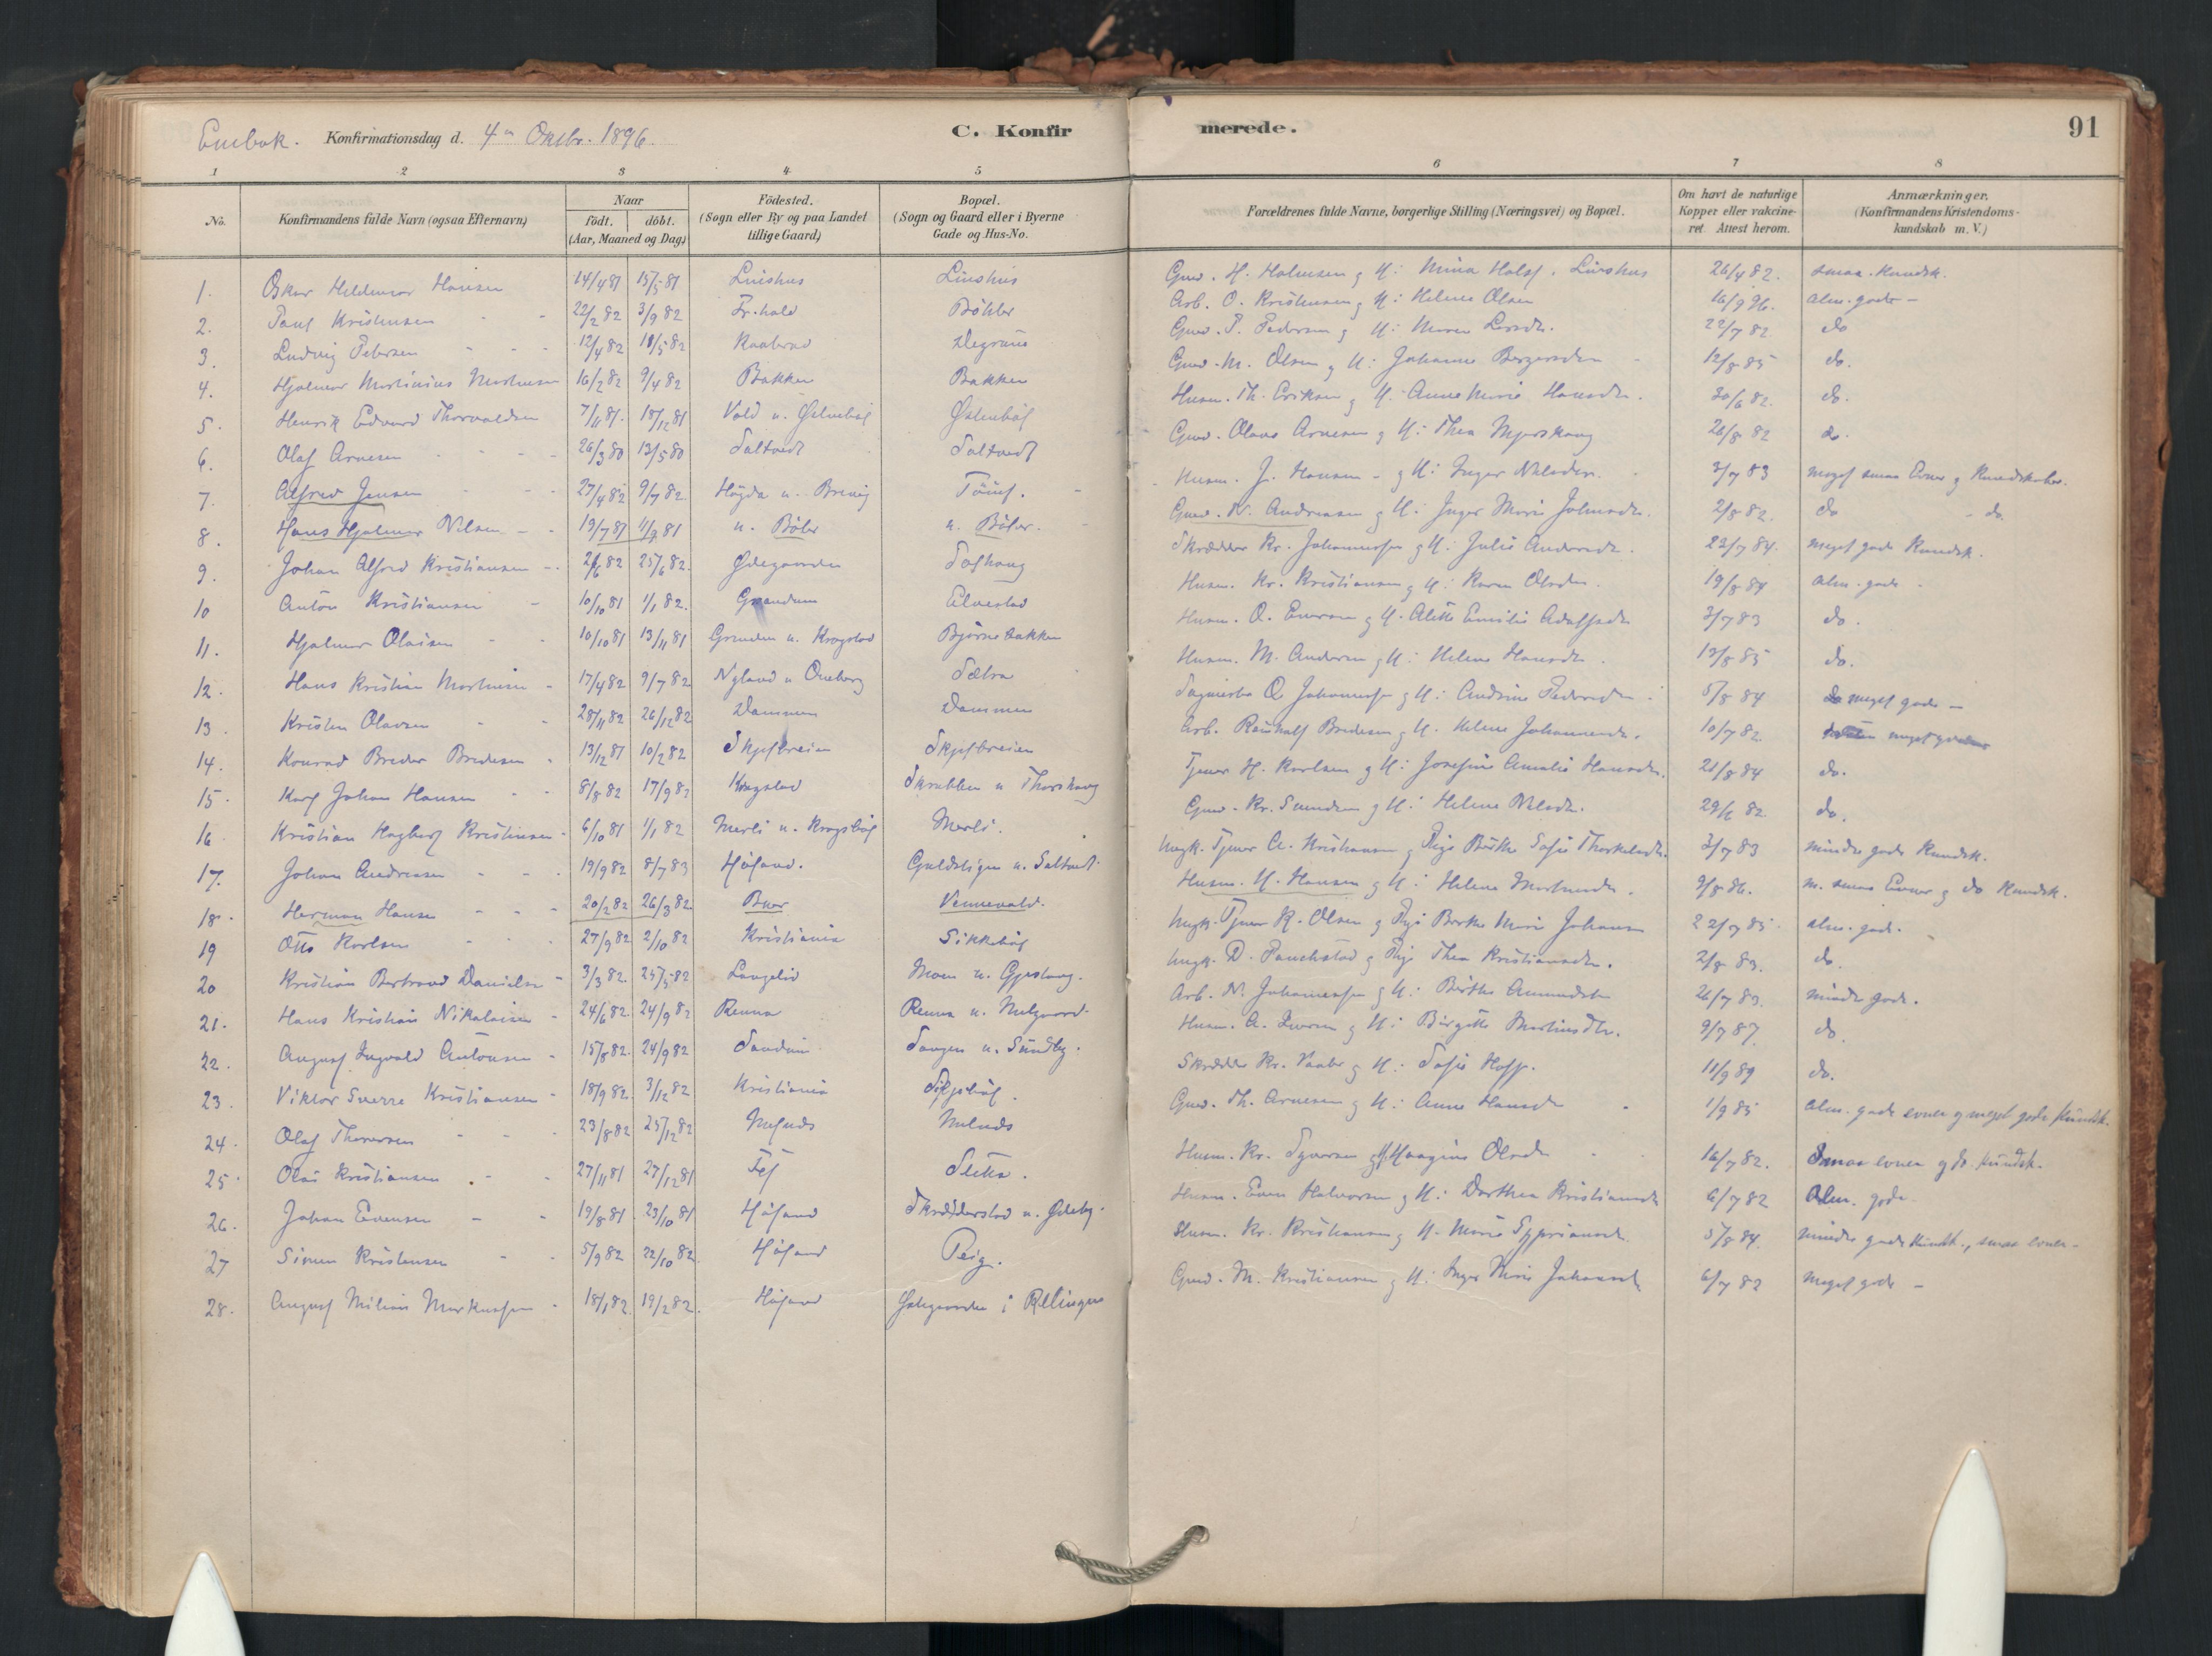 Enebak. Konfirmationsdag d. 4de Oktbr. 1896. C. Konfirmerede. 91
1 2 3 4 5 6 7 8
No. Konfirmandens fulde Navn (ogsaa Efternavn) Naar födt. döbt. (Aar, Maaned og Dag) Födested. (Sogn eller By og paa Landet tillige Gaard) Bopæl. (Sogn og Gaard eller i Byerne Gade og Hus-No. Forældrenes fulde Navne, borgerlige Stilling (Næringsvei) og Bopæl. Om havt de naturlige Kopper eller vakcineret. Attest herom. Anmærkninger. (Konfirmandens Kristendomskundskab m. V.)
1. Oskar Hildemar Hansen 14/4 81 15/5 81 Linshus Linshus Gmd. H. Halvorsen og H: Mina . Linshus 26/4 82. smaa Kundsk.
2. Paul Kristensen 22/2 82 3/9 82 Fr.hald Böhler Arb. O. Kristensen og H: Helene Olsen 16/9 96. alm. gode
3. Ludvig Petersen 12/4 82 18/5 82 Kaaterud Gmd. P. Pedersen og H: Maren Larsdtr. 22/7 82 do
4. Hjalmar Martinius Martinsen 16/2 82 9/4 82 Bakken Bakken Gmd. M. Olsen og H: Johanne Bergersdtr 12/8 85 do.
5. Henrik Edvard Thorvaldsen 7/11 81. 18/12 81 Vold u. Østenbøl Østenbøl Husm. Th. Eriksen og H. Anne Marie Hansdtr. 30/6 82. do.
6. Olaf Arnesen 26/3 80 13/5 80 Saltvedt Saltvedt Gmd. Olaus Arnesen og H: Thea Mjerskaug 26/8 82 do.
7. Alfred Jensen 27/4 82 9/7 82 Høgda u. Brevig Husm. J. Hansen og H: Inger Nilsdtr. 3/7 83 meget smaa Evner og Kundskaber.
8. Hans Hjalmar Nilsen 19/7 81 11/9 81 u. Böler u. Böler. Gmd. N. Andreasen og H: Inger Marie Johnsdtr. 2/8 82. do do
9. Johan Alfred Kristiansen 2/6 82 25/6 82. Ødegaarden Solhaug Skrædder Kr. Johannesen og H: Julie Andersdtr. 23/7 84. meget gode Kundsk.
10 Anton Kristiansen 10/10 81 1/1 82. Grandum Elvestad Husm. Kr. Kristiansen og H: Karen Olsdtr. 19/8 84 alm. gode
11. Hjalmar Olaisen 10/10 81 13/11 81 Grinden u. Krogstad Bjørnebakken Husm. O. Enersen og H. Alette Emilie Adolfsdtr 3/7 83 do.
12. Hans Kristian Martinsen 17/4 82 9/7 82 Nyland u Oneberg Sætra Husm. M. Andersen og H: Helene Hansdtr. 13/8 85 do.
13. Kristen Olavsen 28/11 82 26/12 82 Dammen Dammen O. Johannesen og H: Andrine Pedersdtr 5/8 84 meget gode
14. Konrad Breder Bredesen 13/12 81 10/2 82 Skjefbreien Skjefbreien Arb. Bredesen og H. Helene Johannesdtr. 10/7 82. meget gode
15. Karl Johan Hansen 8/8 82 17/9 82 Krogstad Skrabben u Thorshaug Tjener H. Karlsen og H: Josefine Amalie Hansdtr. 21/8 84 do.
16 Kristian Hagbart Kristiansen 6/10 81 1/1 82 Merli u. Krogsbøl Merli. Gmd. Kr. Svendsen og H: Helene Nilsdtr. 29/6 82 do.
17. Johan Andreasen 19/9 82 8/7 83 Høland. Guldstigen u. Saltvedt Ungk. Tjener A. Kristiansen og Pige Berthe Sofie Thorkelsdtr. 3/7 83 mindre gode Kundsk.
18. Herman Hansen 20/2 82 26/3 82 Buer Vennevold. Husm. H. Hansen og H: Helene Martinsdtr. 9/8 86. m. smaa Evner og do Kundsk.
19 Otto Karlsen 27/9 82 2/10 82 Kristiania Sikkebøl Ungk. Tjener K. Olsen og Pige Berthe Marie Johansen 22/7 85. alm. gode.
20 Kristian Bertrand Danielsen 3/3 82. 25/5 82 Langelid Moen u. Gjestang. Ungk. D. og Pige Thea Kristiansdtr. 2/8 83. do.
21. Hans Kristian Nikolaisen 24/6 82 24/9 82 Renna Renna u. Melgaard. Arb. N. Johannesen og H: Berthe Amundsdtr 26/7 83. mindre gode.
22. August Ingvald Antonsen 15/8 82. 24/9 82 Tangen u. Sundby. Husm. A. Iversen og H: Birgitte Martinsdtr. 9/7 87. do.
23. Viktor Sverre Kristiansen 18/9 82. 3/12 82 Kristiania Skrædder Kr. og H: Sofie Hoff. 11/9 89 do.
24. Olaf Thoresen 23/8 82 25/12 82 Gmd. Th. Arnesen og H: Anne Hansdtr 1/9 85 alm. gode evner og meget gode Kundsk.
25. Olai Kristiansen 27/11 81 27/12 81 Tef Sletta. Husm. Kr. Syversen og H Maagine Olsdtr 16/7 82. Smaa evner og do. Kundsk.
26. Johan Evensen 19/8 81 23/10 81 Høland Skrædderstad u. Ødeby. Husm. Even Halvorsen og H: Dorthea Kristiansdtr 6/7 82 Alm. gode
27 Simen Kristensen 5/9 82 22/10 82. Høland Husm. Kr. Kristiansen og H. Marie Syppriansdtr. 5/8 84. mindre gode Kundsk., smaa evner.
28. August Milian Markussen 18/1 82. 19/2 82. Høland Ødegaarden i Rellingen Gmd. M. Kristiansen og H: Inger Marie Johansdtr. 6/7 82 meget gode